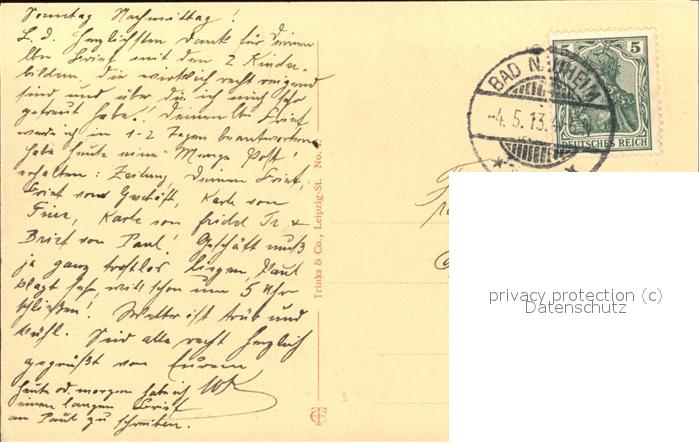 Sonntag Nachmittag!
L. d. herzlichsten Dank für Deinen
lbn Brief mit den 2 Kinder-
bildern, die wirklich recht reizend
sind und über die ich mich sehr
gefreut habe. Deinen lbn Brief
werde ich in 1-2 Tagen beantworten
habe heute eine Menge Post
erhalten: Zeitung, Deinen Brief,
Brief vom Geschäft, Karte von
Karte von
Brief von Paul! Geschäft muß
ja ganz trostlos liegen, Paul
klagt sehr, will schon um 5 Uhr
schließen! Wetter ist trüb und
kühl. Seid alle recht herzlich
gegrüßt von Eurem
heute od. morgen habe ich
einen langen Brief
an Paul zu schreiben.
Trinks & Co., Leipzig-St. No.
BAD NAUHEIM
-4.5.13.
5 5
DEUTSCHES REICH
privacy protection (c)
Datenschutz